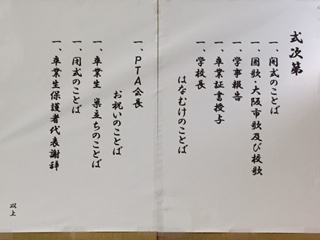 式次第
一、開式のことば
一、国歌・大阪市歌及び校歌
一、学事報告
一、卒業証書授与
一、学校長
はなむけのことば
一、PTA会長
お祝いのことば
一、卒業生 巣立ちのことば
一、閉式のことば
一、卒業生保護者代表謝辞
以上